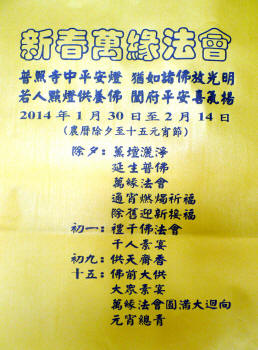 新春萬緣法會
普照寺中平安燈　猶如諸佛放光明
若人點燈供養佛　閤府平安喜氣揚
2014年1月30日至2月14日
(農曆除夕至十五元宵節)
除夕：薰壇灑淨
延生普佛
萬緣法會
通宵燃燭祈福
除舊迎新接福
初一：禮千佛法會
千人素宴
初九：供天齊香
十五：佛前大供
大眾素宴
萬緣法會圓滿大迴向
元宵總青